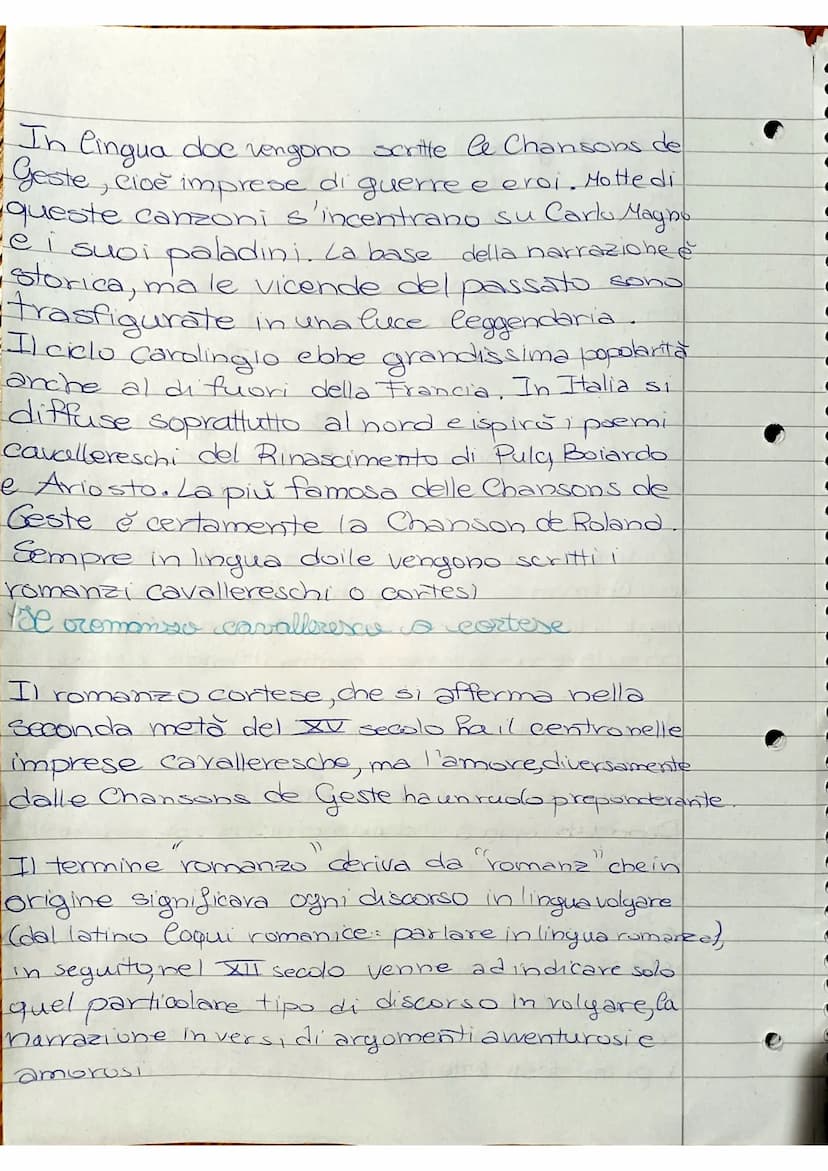 In lingua doc vengono scritte le Chansons de
Geste, cioè imprese di guerre e eroi. Molte di
queste canzoni s'incentrano su Carlo Magno
e i suoi paladini. La base della narrazione è
storica, ma le vicende del passato sono
trasfigurate in una luce leggendaria.
Il ciclo carolingio ebbe grandissima popolarità
anche al di fuori della Francia. In Italia si
diffuse soprattutto al nord e ispirò i poemi
cavallereschi del Rinascimento di Pulci, Boiardo
e Ariosto. La più famosa delle Chansons de
Geste è certamente la Chanson de Roland.
Sempre in lingua doile vengono scritti i
romanzi cavallereschi o cortesi
Il romanzo cavalleresco o cortese
Il romanzo cortese, che si afferma nella
seconda metà del XV secolo ha il centro nelle
imprese cavalleresche, ma l'amore, diversamente
dalle Chansons de Geste ha un ruolo preponderante.
Il termine "romanzo" deriva da "romanz" che in
origine significava ogni discorso in lingua volgare
(dal latino loqui romanice: parlare in lingua romanza),
in seguito, nel XII secolo venne ad indicare solo
quel particolare tipo di discorso in volgare, la
narrazione in versi di argomenti avventurosi e
amorosi